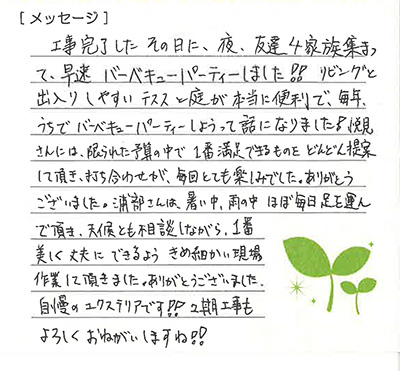 [メッセージ]
工事完了した その日に、夜、友達4家族集まっ
て、早速 バーベキューパーティーしました!! リビングと
出入りしやすい テラスと庭が本当に便利で、毎年、
うちで バーベキューパーティーしようって話になりました!悦見
さんには、限られた予算の中で 1番満足できるものを どんどん提案
して頂き、打ち合わせが、毎回とても楽しみでした。ありがとう
ございました。浦部さんは、暑い中、雨の中 ほぼ毎日足を運ん
で頂き、天候とも相談しながら、1番
美しく丈夫にできるよう きめ細かい現場
作業して頂きました。ありがとうございました。
自慢の エクステリアです!! 2期工事も
よろしく おねがいしますね!!